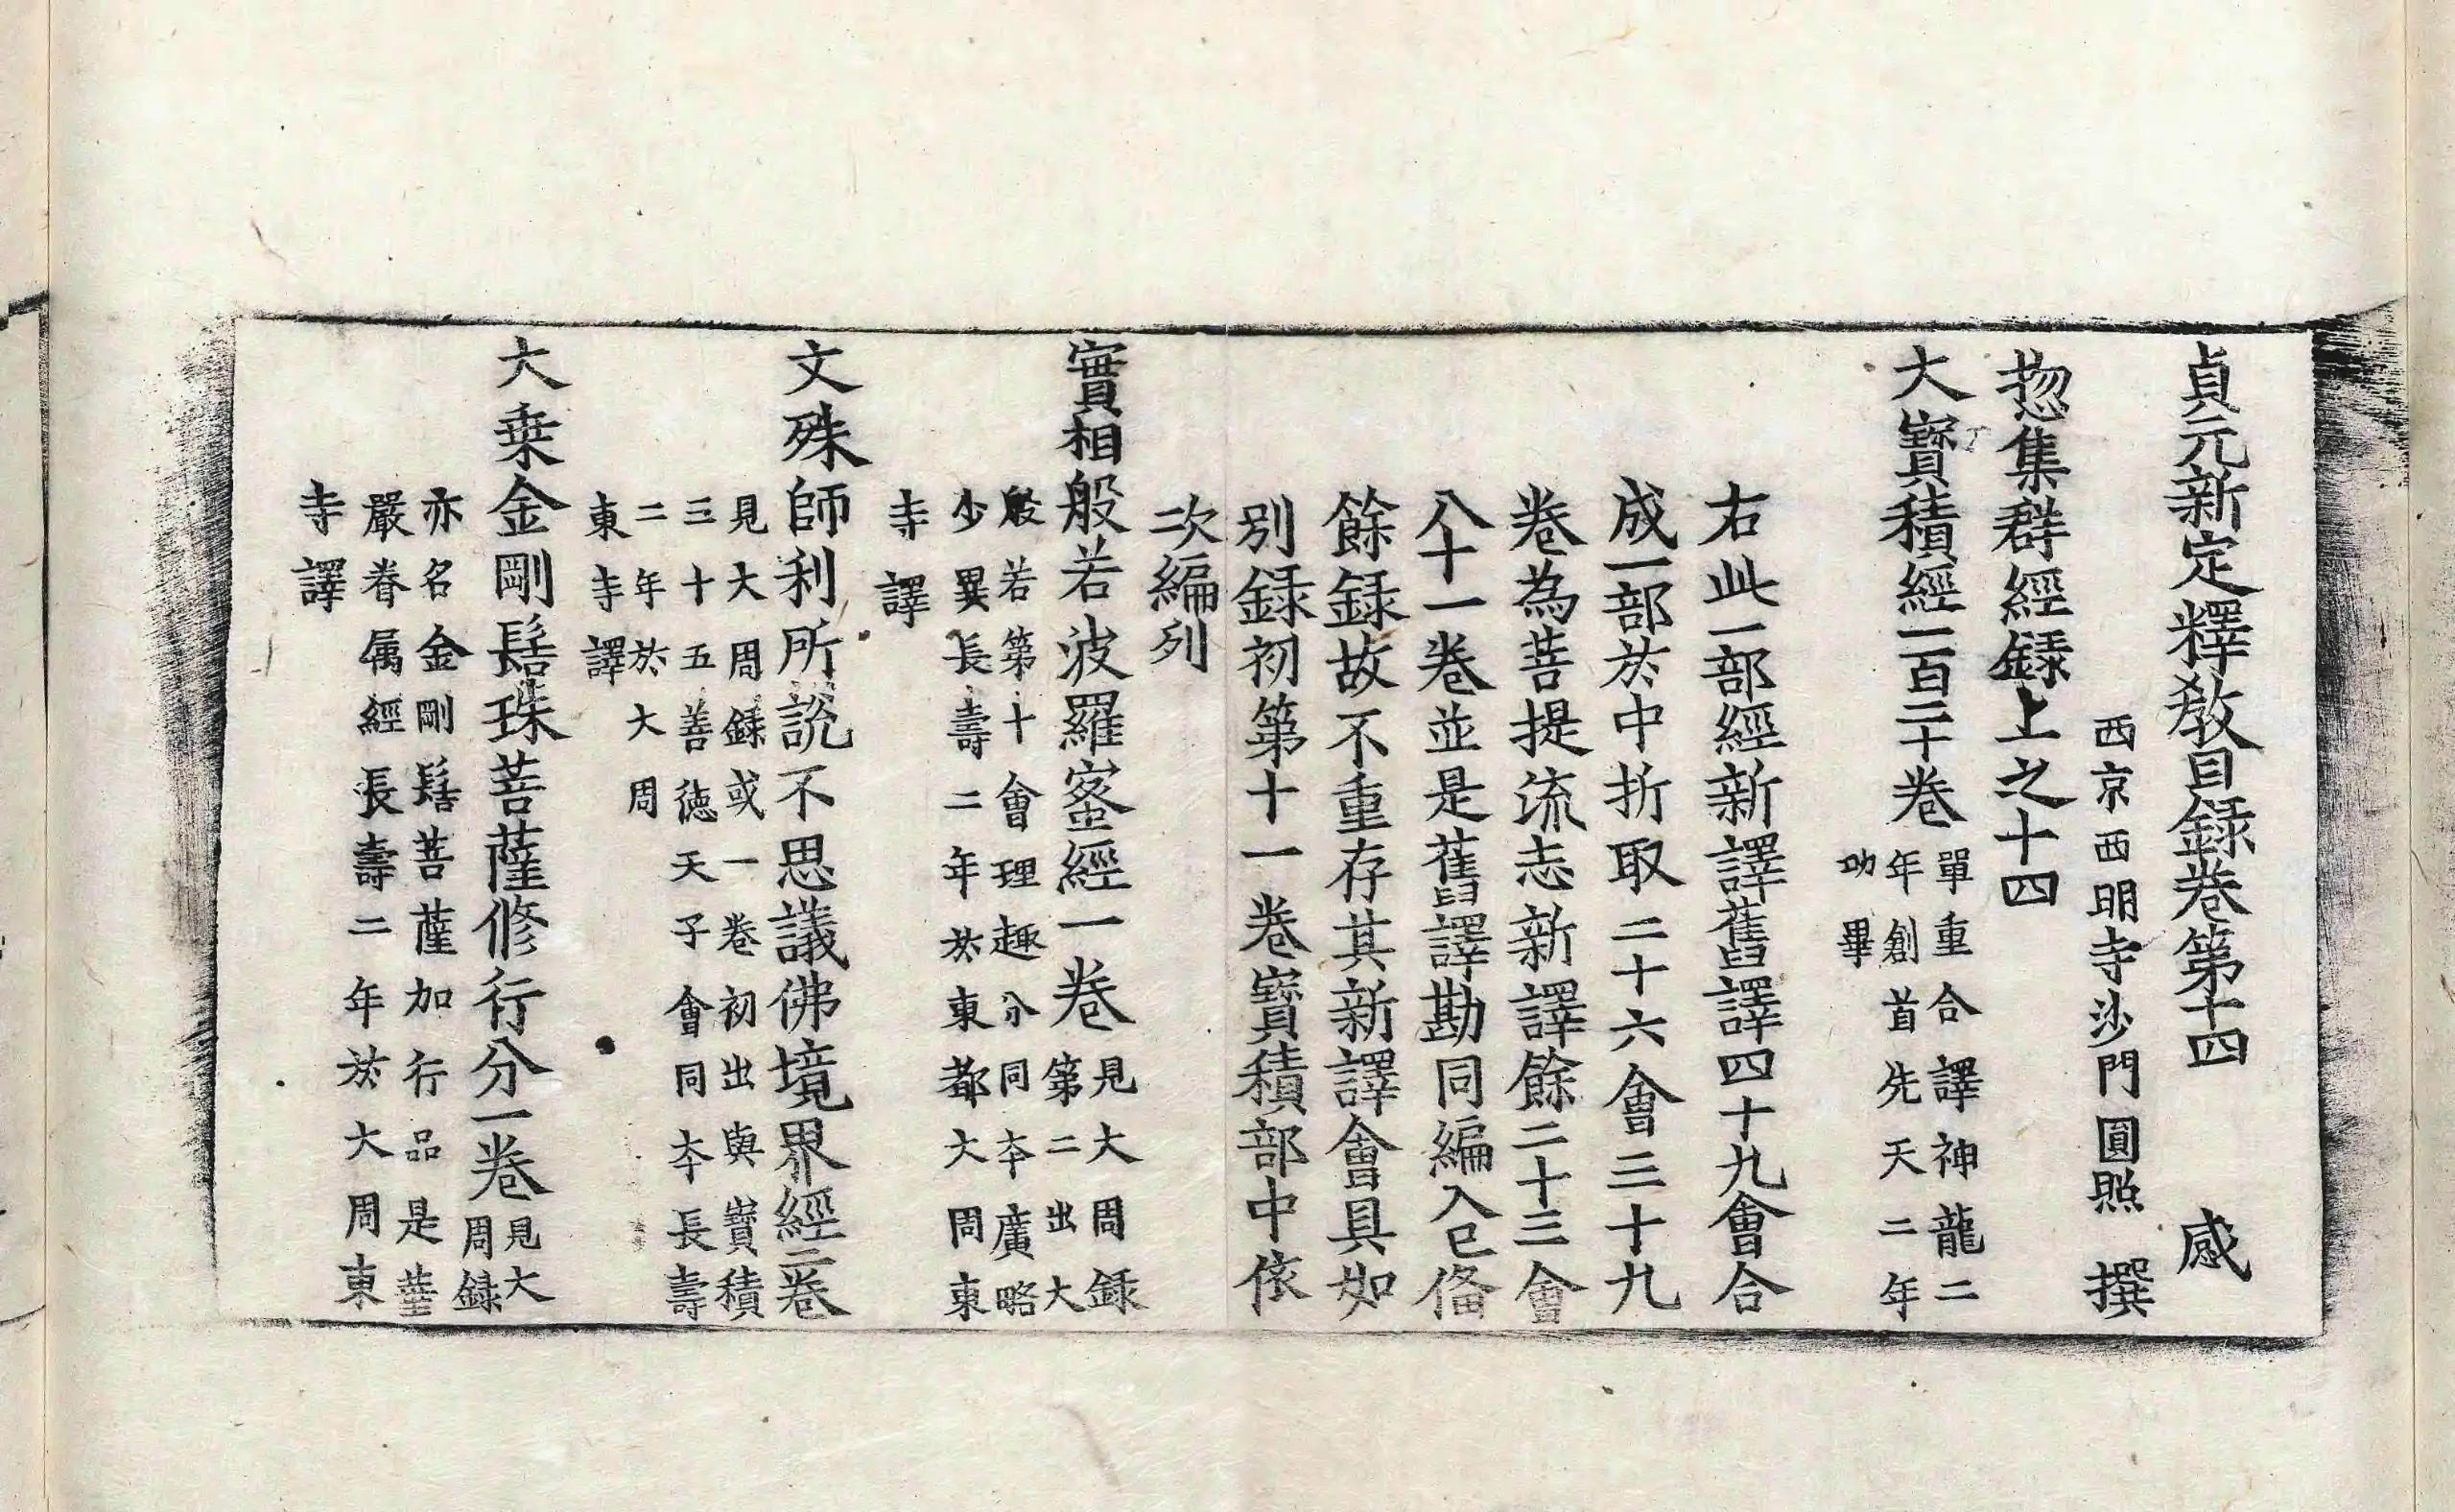 貞元新定釋教目録卷第十四 感
西京西明寺沙門圓照 撰
揔集群經録上之十四
大寶積經一百二十卷
單重合譯神龍二
年創首先天二年
功畢
右此一部經新譯舊譯四十九會合
成一部於中折取二十六會三十九
卷為菩提流志新譯餘二十三會
八十一卷並是舊譯勘同編入已備
餘録故不重存其新譯會具如
別録初第十一卷寶積部中依
次編列
實相般若波羅蜜經一卷
見大周録
第二出大
般若第十會理趣分同本廣略
少異長壽二年於東都大周東
寺譯
文殊師利所說不思議佛境界經二卷
見大周録或一卷初出與寶積
三十五善德天子會同本長壽
二年於大周
東寺譯
大乗金剛髻珠菩薩修行分一卷
見大
周録
亦名金剛髻菩薩加行品是華
嚴眷属經長壽二年於大周東
寺譯